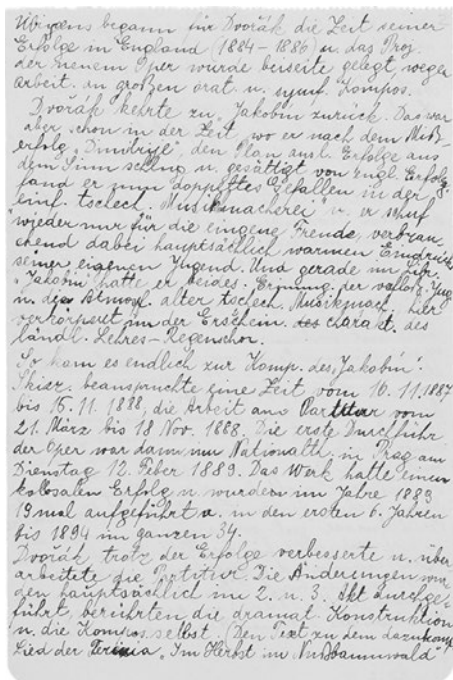 Übrigens begann für Dvořák die Zeit seiner
Erfolge in England (1884 – 1886) u. das Proj.
der neuen Oper wurde beiseite gelegt, wegen
Arbeit an großen orat. u. symf. Kompos.
Dvořák kehrte zu „Jakobin zurück. Das war
aber schon in der Zeit, wo er nach dem Miß-
erfolg „Dimitrije", den Plan ausl. Erfolge aus
dem Sinn schlug u. gesättigt von engl. Erfolg.
fand er nun doppeltes Gefallen in der
einf. tschech. „Musikmacherei" u. er schuf
wieder nur für die eingene Freude, verbrau-
chend dabei hauptsächlich warmen Eindrücke
seiner eigenen Jugend. Und gerade im Libr.
„Jakobin hatte er beides. der Jug
u. der Atmosf. alter tschech. Musikmach. hier
verkörpert in der Erschein. des charakt. des
ländl. Lehres – Regenschori.
So kam es endlich zur Komp. des „Jakobin".
Skizz. beanspruchte eine Zeit vom 10. 11. 1887
bis 15. 11. 1888, die Arbeit ans Partitur vom
21. März bis 18 Nov. 1888. Die erste Durchführ
der Oper war dann im Nationalth. in Prag am
Dienstag 12. Feber 1889. Das Werk hatte einen
kolosalen Erfolg u. wurden im Jahre 1889
19 mal aufgeführt u. in den ersten 6. Jahren
bis 1894 im ganzen 34.
Dvořák trotz der Erfolge verbesserte u. über
arbeitete die Partitur. Die Änderungen wur-
den hauptsächlich im 2. u. 3. Akt durchge-
führt, berührten die dramat. Konstruktion
u. die Kompos. selbst. (Den Text zu dem dazukom
Lied der Terinka „Im Herbst im Nußbaumwald"